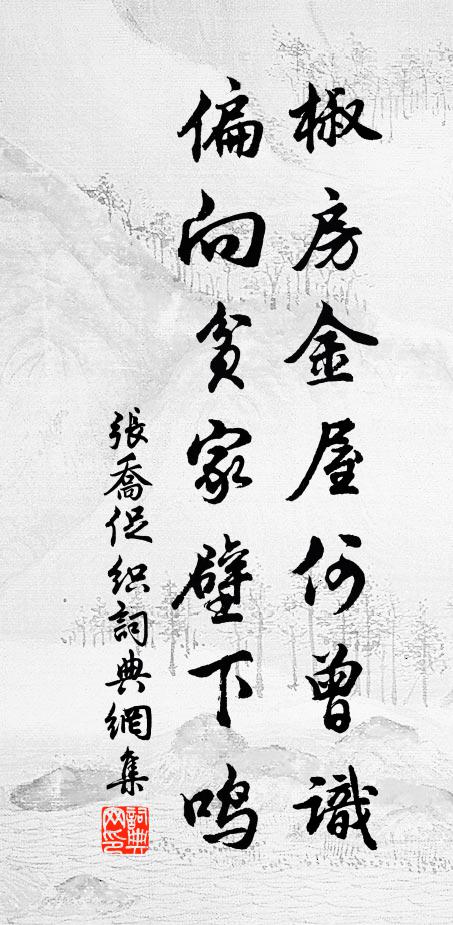 椒房金屋何曾識
偏向貧家壁下鳴
張喬促织詞典網集
詞典網印